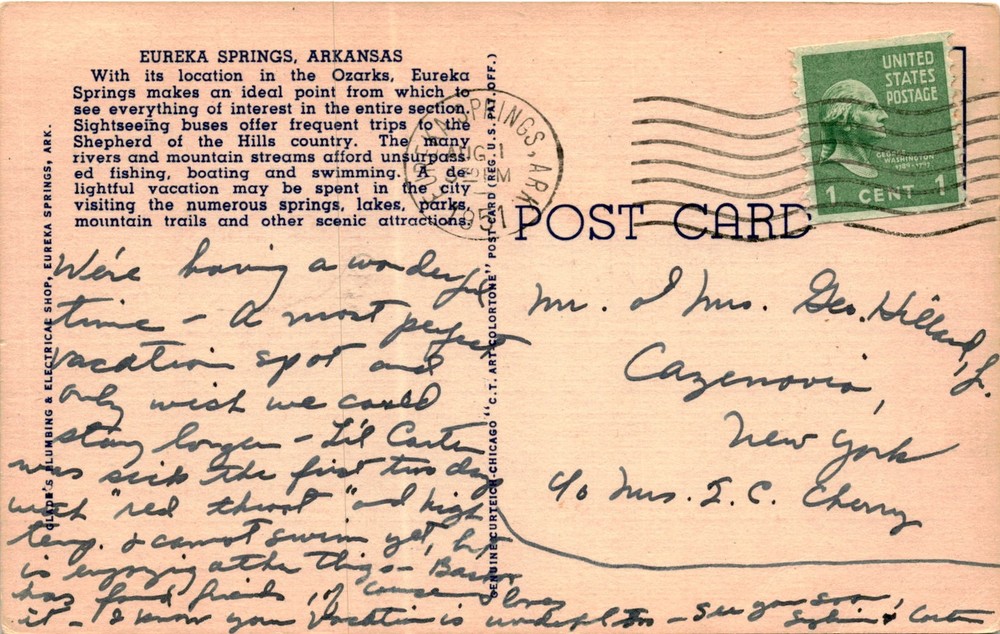 EUREKA SPRINGS, ARKANSAS
With its location in the Ozarks, Eureka
Springs makes an ideal point from which to
see everything of interest in the entire section.
Sightseeing buses offer frequent trips to the
Shepherd of the Hills country. The many
rivers and mountain streams afford unsurpass-
ed fishing, boating and swimming. A de-
lightful vacation may be spent in the city
visiting the numerous springs, lakes, parks,
mountain trails and other scenic attractions.
GLADE'S PLUMBING & ELECTRICAL SHOP, EUREKA SPRINGS, ARK.
We're having a wonderful
time – A most perfect
vacation spot and
only wish we could
stay longer – Lil Carter
was sick the first two days
with "red throat" and high
temp. & cannot swim yet, but
is enjoying other things –
has found friends, of course loves
it – I know your vacation is wonderful too – See you soon,
& Carter
GENUINE CURTEICH-CHICAGO "C.T. ART-COLORTONE" POST CARD (REG. U.S. PAT. OFF.)
EUREKA SPRINGS, ARK.
AUG 1
PM
1951
POST CARD
UNITED
STATES
POSTAGE
GEORGE
WASHINGTON
1789-1797
1 CENT 1
Mr. & Mrs. Geo. Hillard, Jr.
Cazenovia,
New York
c/o Mrs. I. C. Cherry